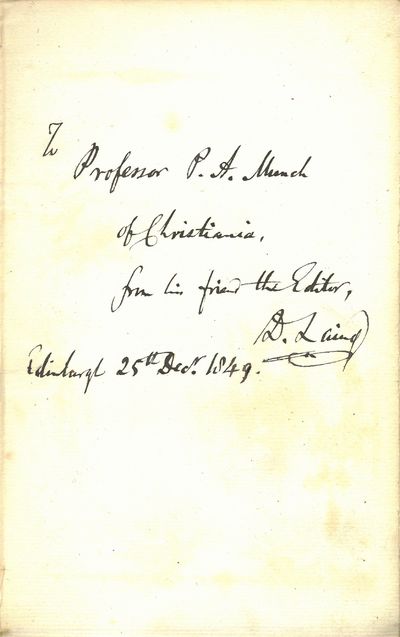 To
Professor P. A. Munch
of Christiania,
from his friend the Editor,
D. Laing
Edinburgh 25th Decr. 1849.